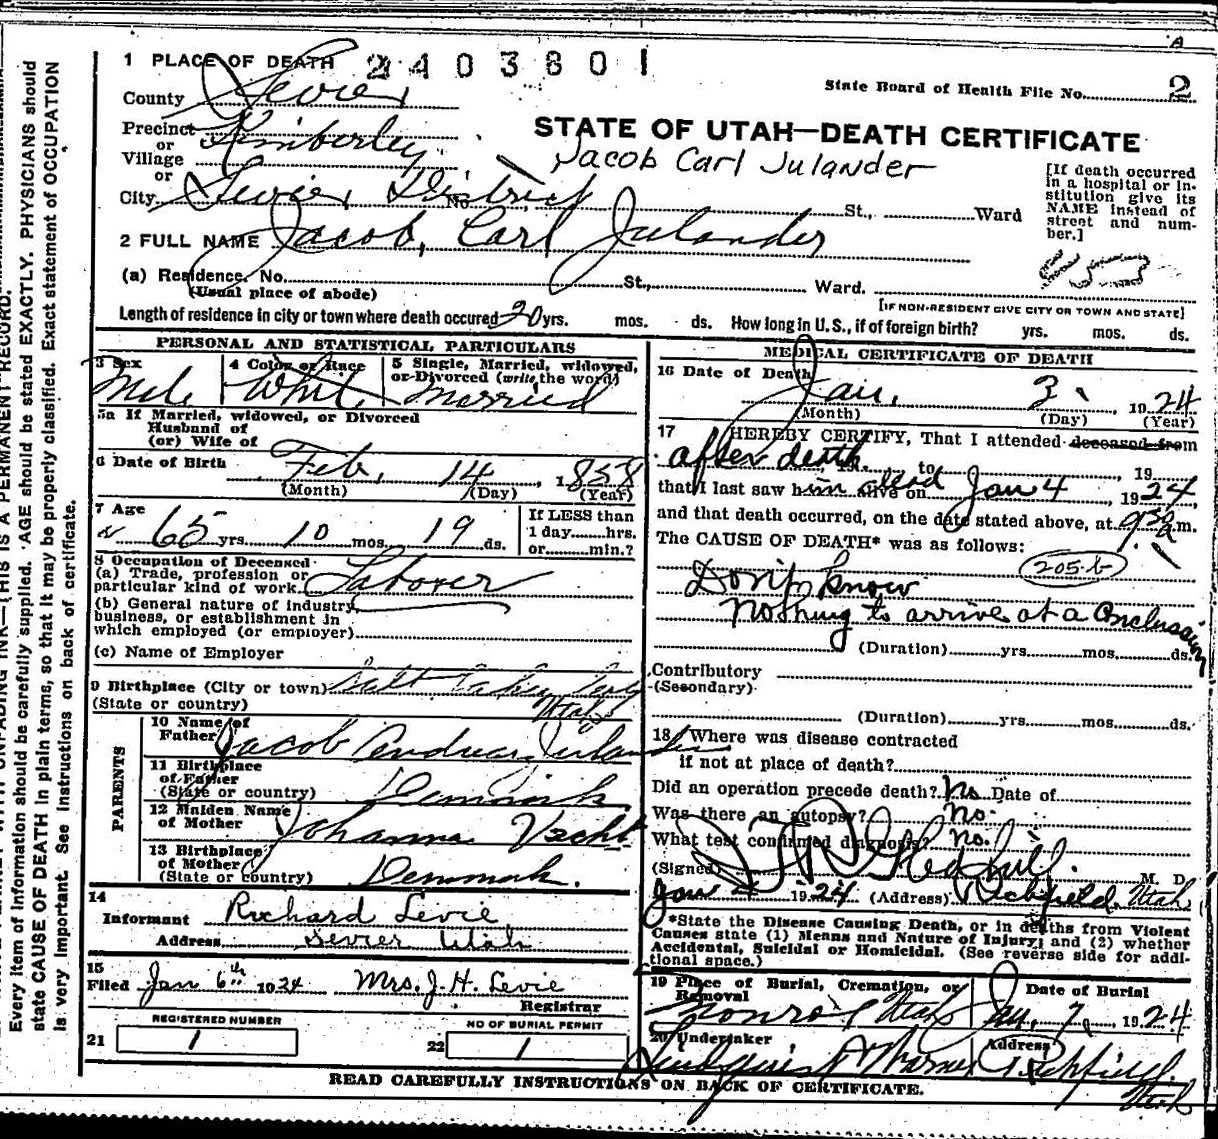 1 PLACE OF DEATH 2403801
State Board of Health File No. 2
County Sevier
Precinct Kimberley
or
Village
or
STATE OF UTAH—DEATH CERTIFICATE
Jacob Carl Julander
[If death occurred in a hospital or institution give its NAME instead of street and number.]
City Sevier District No. St., Ward
2 FULL NAME Jacob, Carl Julander
(a) Residence. No. St., Ward.
(Usual place of abode)
[IF NON-RESIDENT GIVE CITY OR TOWN AND STATE]
Length of residence in city or town where death occured 20 yrs. mos. ds. How long in U. S., if of foreign birth? yrs. mos. ds.
PERSONAL AND STATISTICAL PARTICULARS
3 Sex Male
4 Color or Race White
5 Single, Married, widowed, or Divorced (write the word) Married
5a If Married, widowed, or Divorced
Husband of
(or) Wife of
6 Date of Birth Feb, 14, 1858
(Month) (Day) (Year)
7 Age 65 yrs. 10 mos. 19 ds.
If LESS than
1 day......hrs.
or......min.?
8 Occupation of Deceased
(a) Trade, profession or
particular kind of work. Laborer
(b) General nature of industry,
business, or establishment in
which employed (or employer)
(c) Name of Employer
9 Birthplace (City or town) Salt Lake City
(State or country) Utah
PARENTS
10 Name of
Father Jacob Andrew Julander
11 Birthplace
of Father
(State or country) Denmark
12 Maiden Name
of Mother Johanna
13 Birthplace
of Mother
(State or country) Denmark.
14
Informant Richard Levie
Address Sevier Utah
15
Filed Jan 6th 1924 Mrs. J. H. Levie
Registrar
REGISTERED NUMBER
21 1
NO OF BURIAL PERMIT
22 1
MEDICAL CERTIFICATE OF DEATH
16 Date of Death
Jan. 3, 1924
(Month) (Day) (Year)
17 I HEREBY CERTIFY, That I attended deceased from
after death 19 to 19
that I last saw him dead alive on Jan 4, 1924
and that death occurred, on the date stated above, at 9 30 a m.
The CAUSE OF DEATH* was as follows:
205-b
Don't know
Nothing to arrive at a Conclusion
(Duration) yrs. mos. ds.
Contributory
(Secondary)
(Duration) yrs. mos. ds.
18 Where was disease contracted
if not at place of death?
Did an operation precede death? No Date of
Was there an autopsy? No.
What test confirmed diagnosis? No.
(Signed) M. D.
Jan 1924 (Address) Richfield, Utah
*State the Disease Causing Death, or in deaths from Violent
Causes state (1) Menns and Nature of Injury; and (2) whether
Accidental, Suicidal or Homicidal. (See reverse side for additional space.)
19 Place of Burial, Cremation, or Removal Monroe Utah
Date of Burial Jan, 7, 1924
20 Undertaker
Address Richfield. Utah
READ CAREFULLY INSTRUCTIONS ON BACK OF CERTIFICATE.
Every item of information should be carefully supplied. AGE should be stated EXACTLY. PHYSICIANS should
state CAUSE OF DEATH in plain terms, so that it may be properly classified. Exact statement of OCCUPATION
is very important. See instructions on back of certificate.